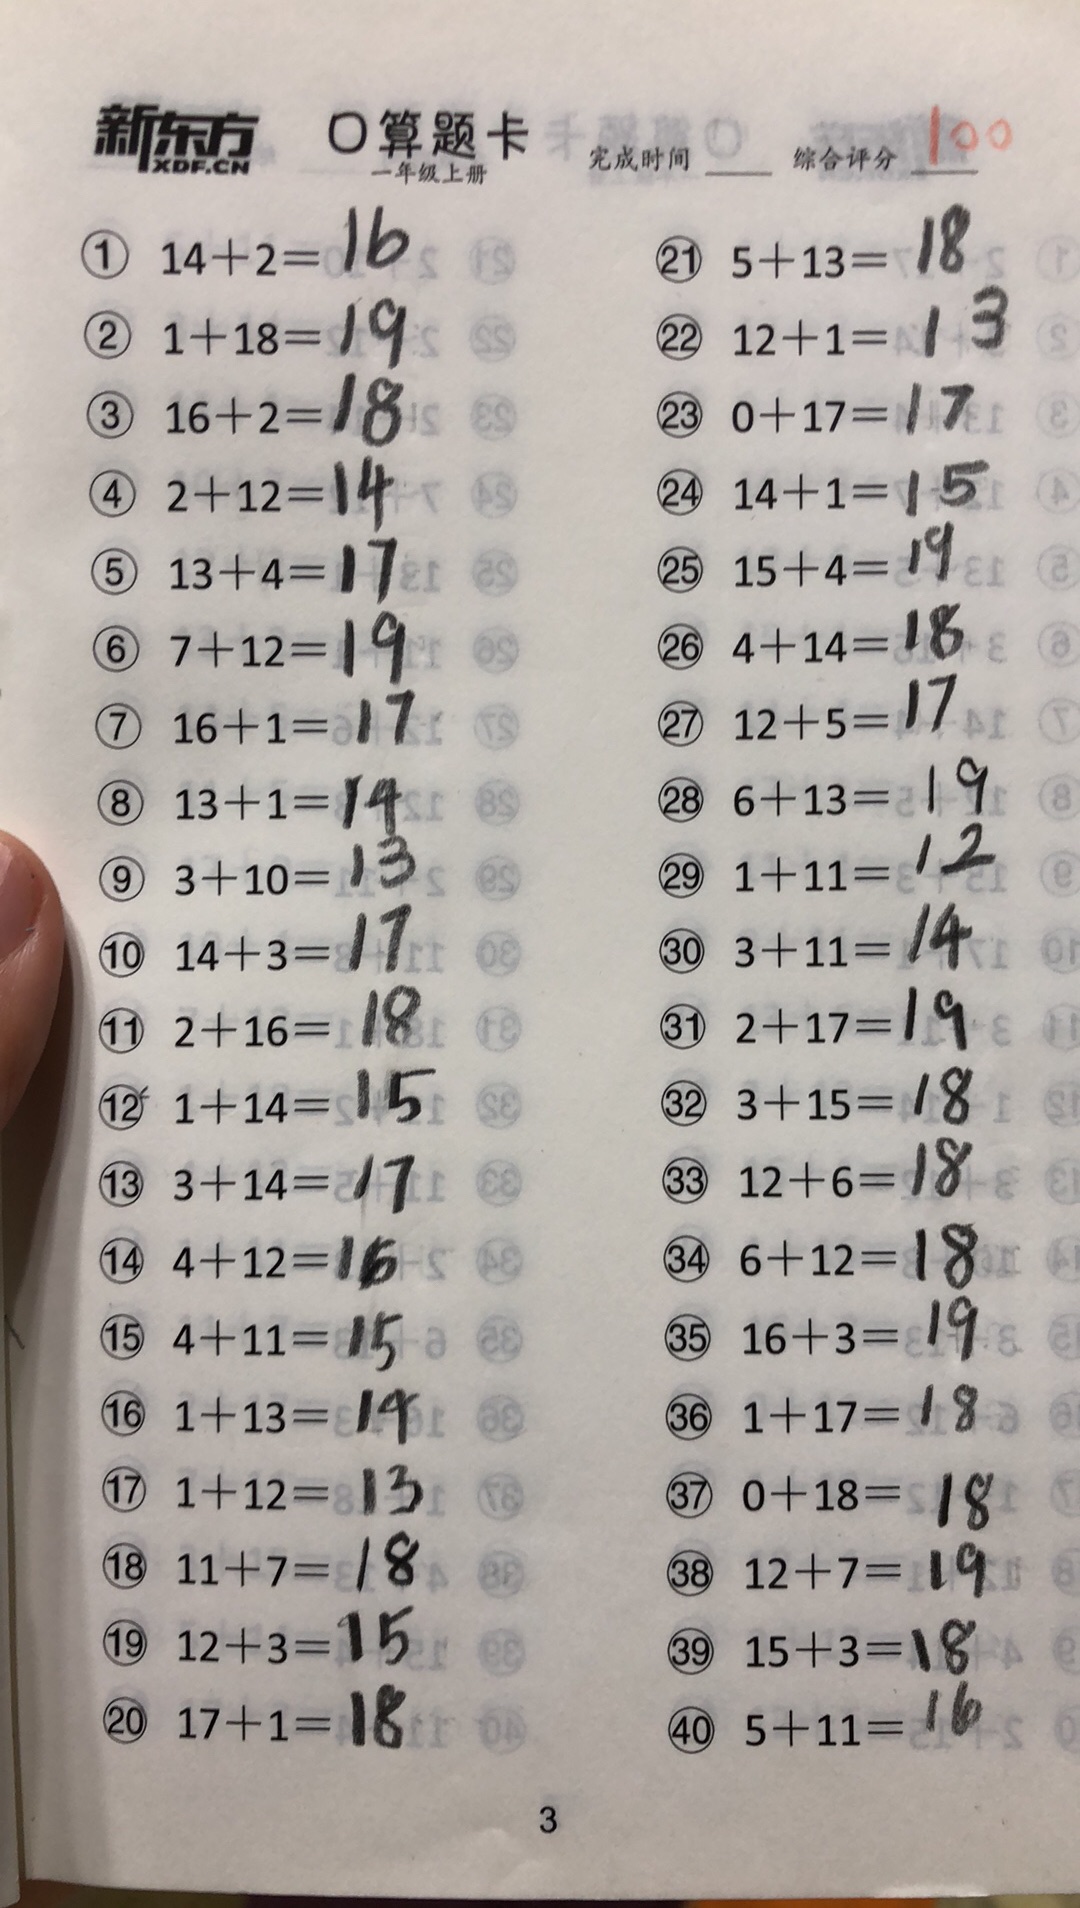 新东方
XDF.CN
口算题卡
一年级上册
完成时间 综合评分 100
① 14+2=16
② 1+18=19
③ 16+2=18
④ 2+12=14
⑤ 13+4=17
⑥ 7+12=19
⑦ 16+1=17
⑧ 13+1=14
⑨ 3+10=13
⑩ 14+3=17
⑪ 2+16=18
⑫ 1+14=15
⑬ 3+14=17
⑭ 4+12=16
⑮ 4+11=15
⑯ 1+13=14
⑰ 1+12=13
⑱ 11+7=18
⑲ 12+3=15
⑳ 17+1=18
㉑ 5+13=18
㉒ 12+1=13
㉓ 0+17=17
㉔ 14+1=15
㉕ 15+4=19
㉖ 4+14=18
㉗ 12+5=17
㉘ 6+13=19
㉙ 1+11=12
㉚ 3+11=14
㉛ 2+17=19
㉜ 3+15=18
㉝ 12+6=18
㉞ 6+12=18
㉟ 16+3=19
㊱ 1+17=18
㊲ 0+18=18
㊳ 12+7=19
㊴ 15+3=18
㊵ 5+11=16
3